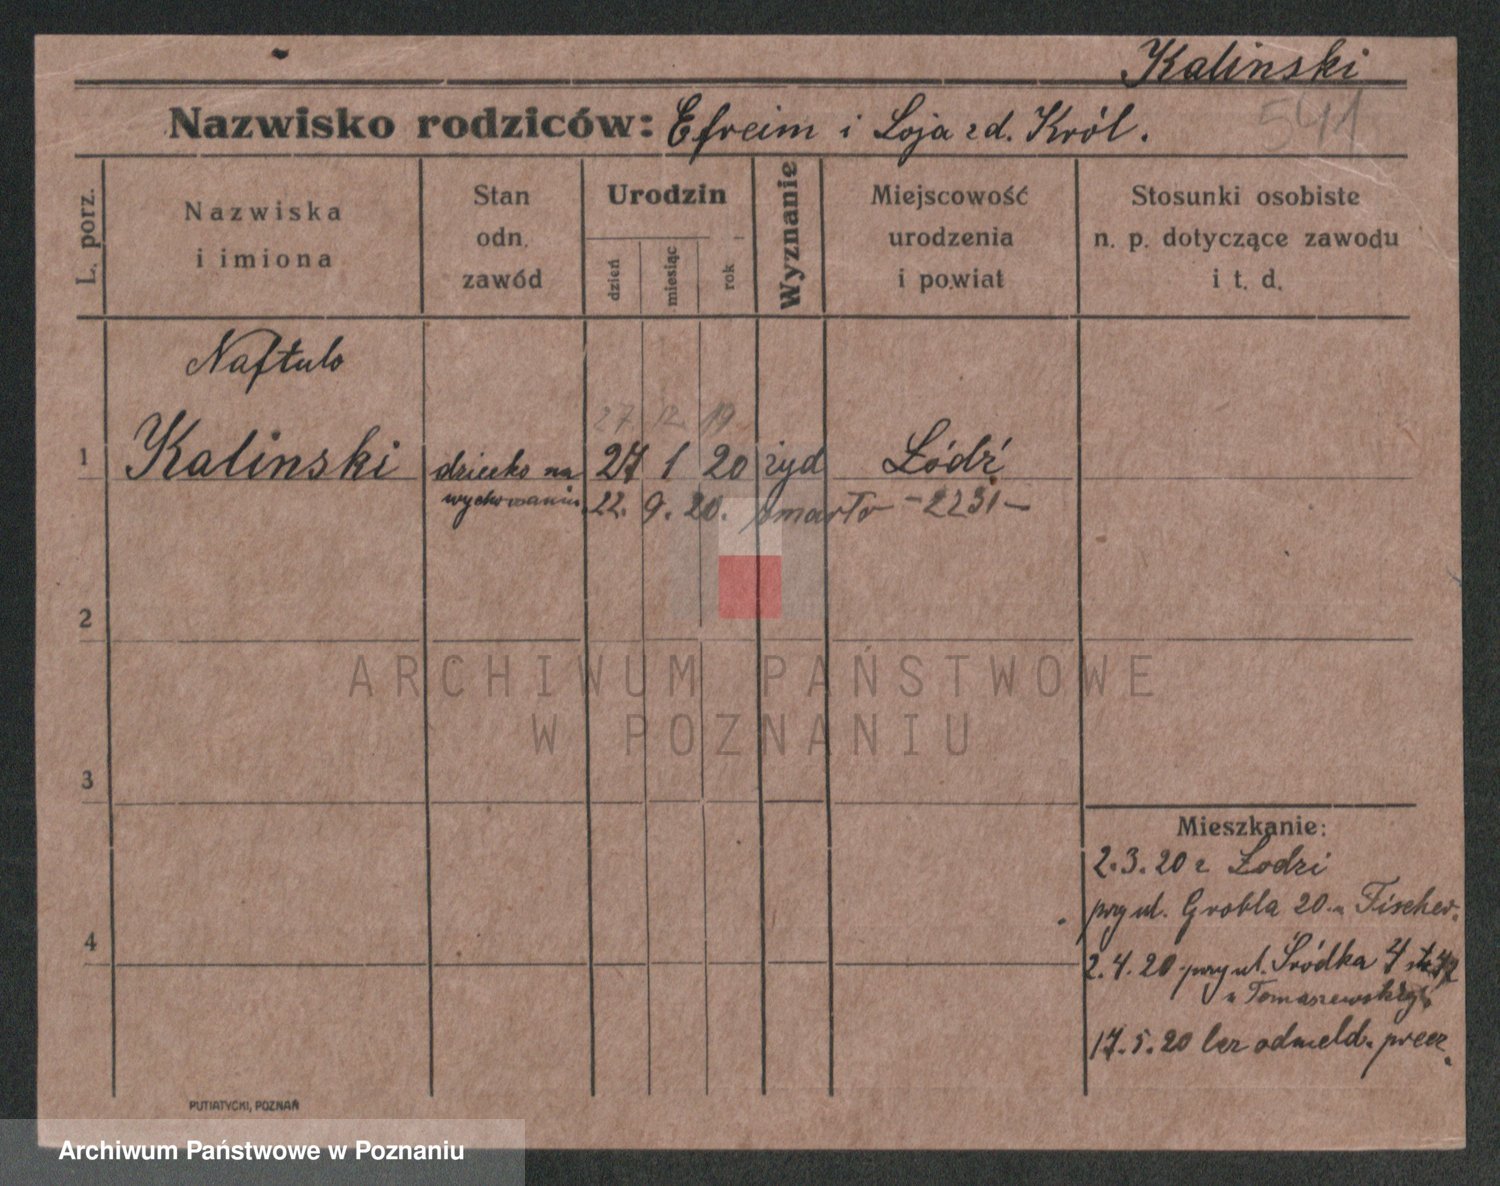 Kalinski
541
Nazwisko rodziców: Efreim i Łoja zd. Król.
L. porz.
Nazwiska
i imiona
Stan
odn.
zawód
Urodzin
dzień
miesiąc
rok
Wyznanie
Miejscowość
urodzenia
i powiat
Stosunki osobiste
n. p. dotyczące zawodu
i t. d.
Naftulo
27 12 19
1 Kalinski dziecko na 27 1 20 żyd Łódź
wychowaniu 22. 9. 20. zmarło -2231-
2
3
4
ARCHIWUM PAŃSTWOWE
W POZNANIU
Mieszkanie:
2.3.20 z Łodzi
przy ul. Grobla 20 u Fischer.
2.4.20 przy ul. Śródka 4
u Tomaszewskiego
17.5.20 bez odmeld. precz.
PUTIATYCKI, POZNAŃ
Archiwum Państwowe w Poznaniu